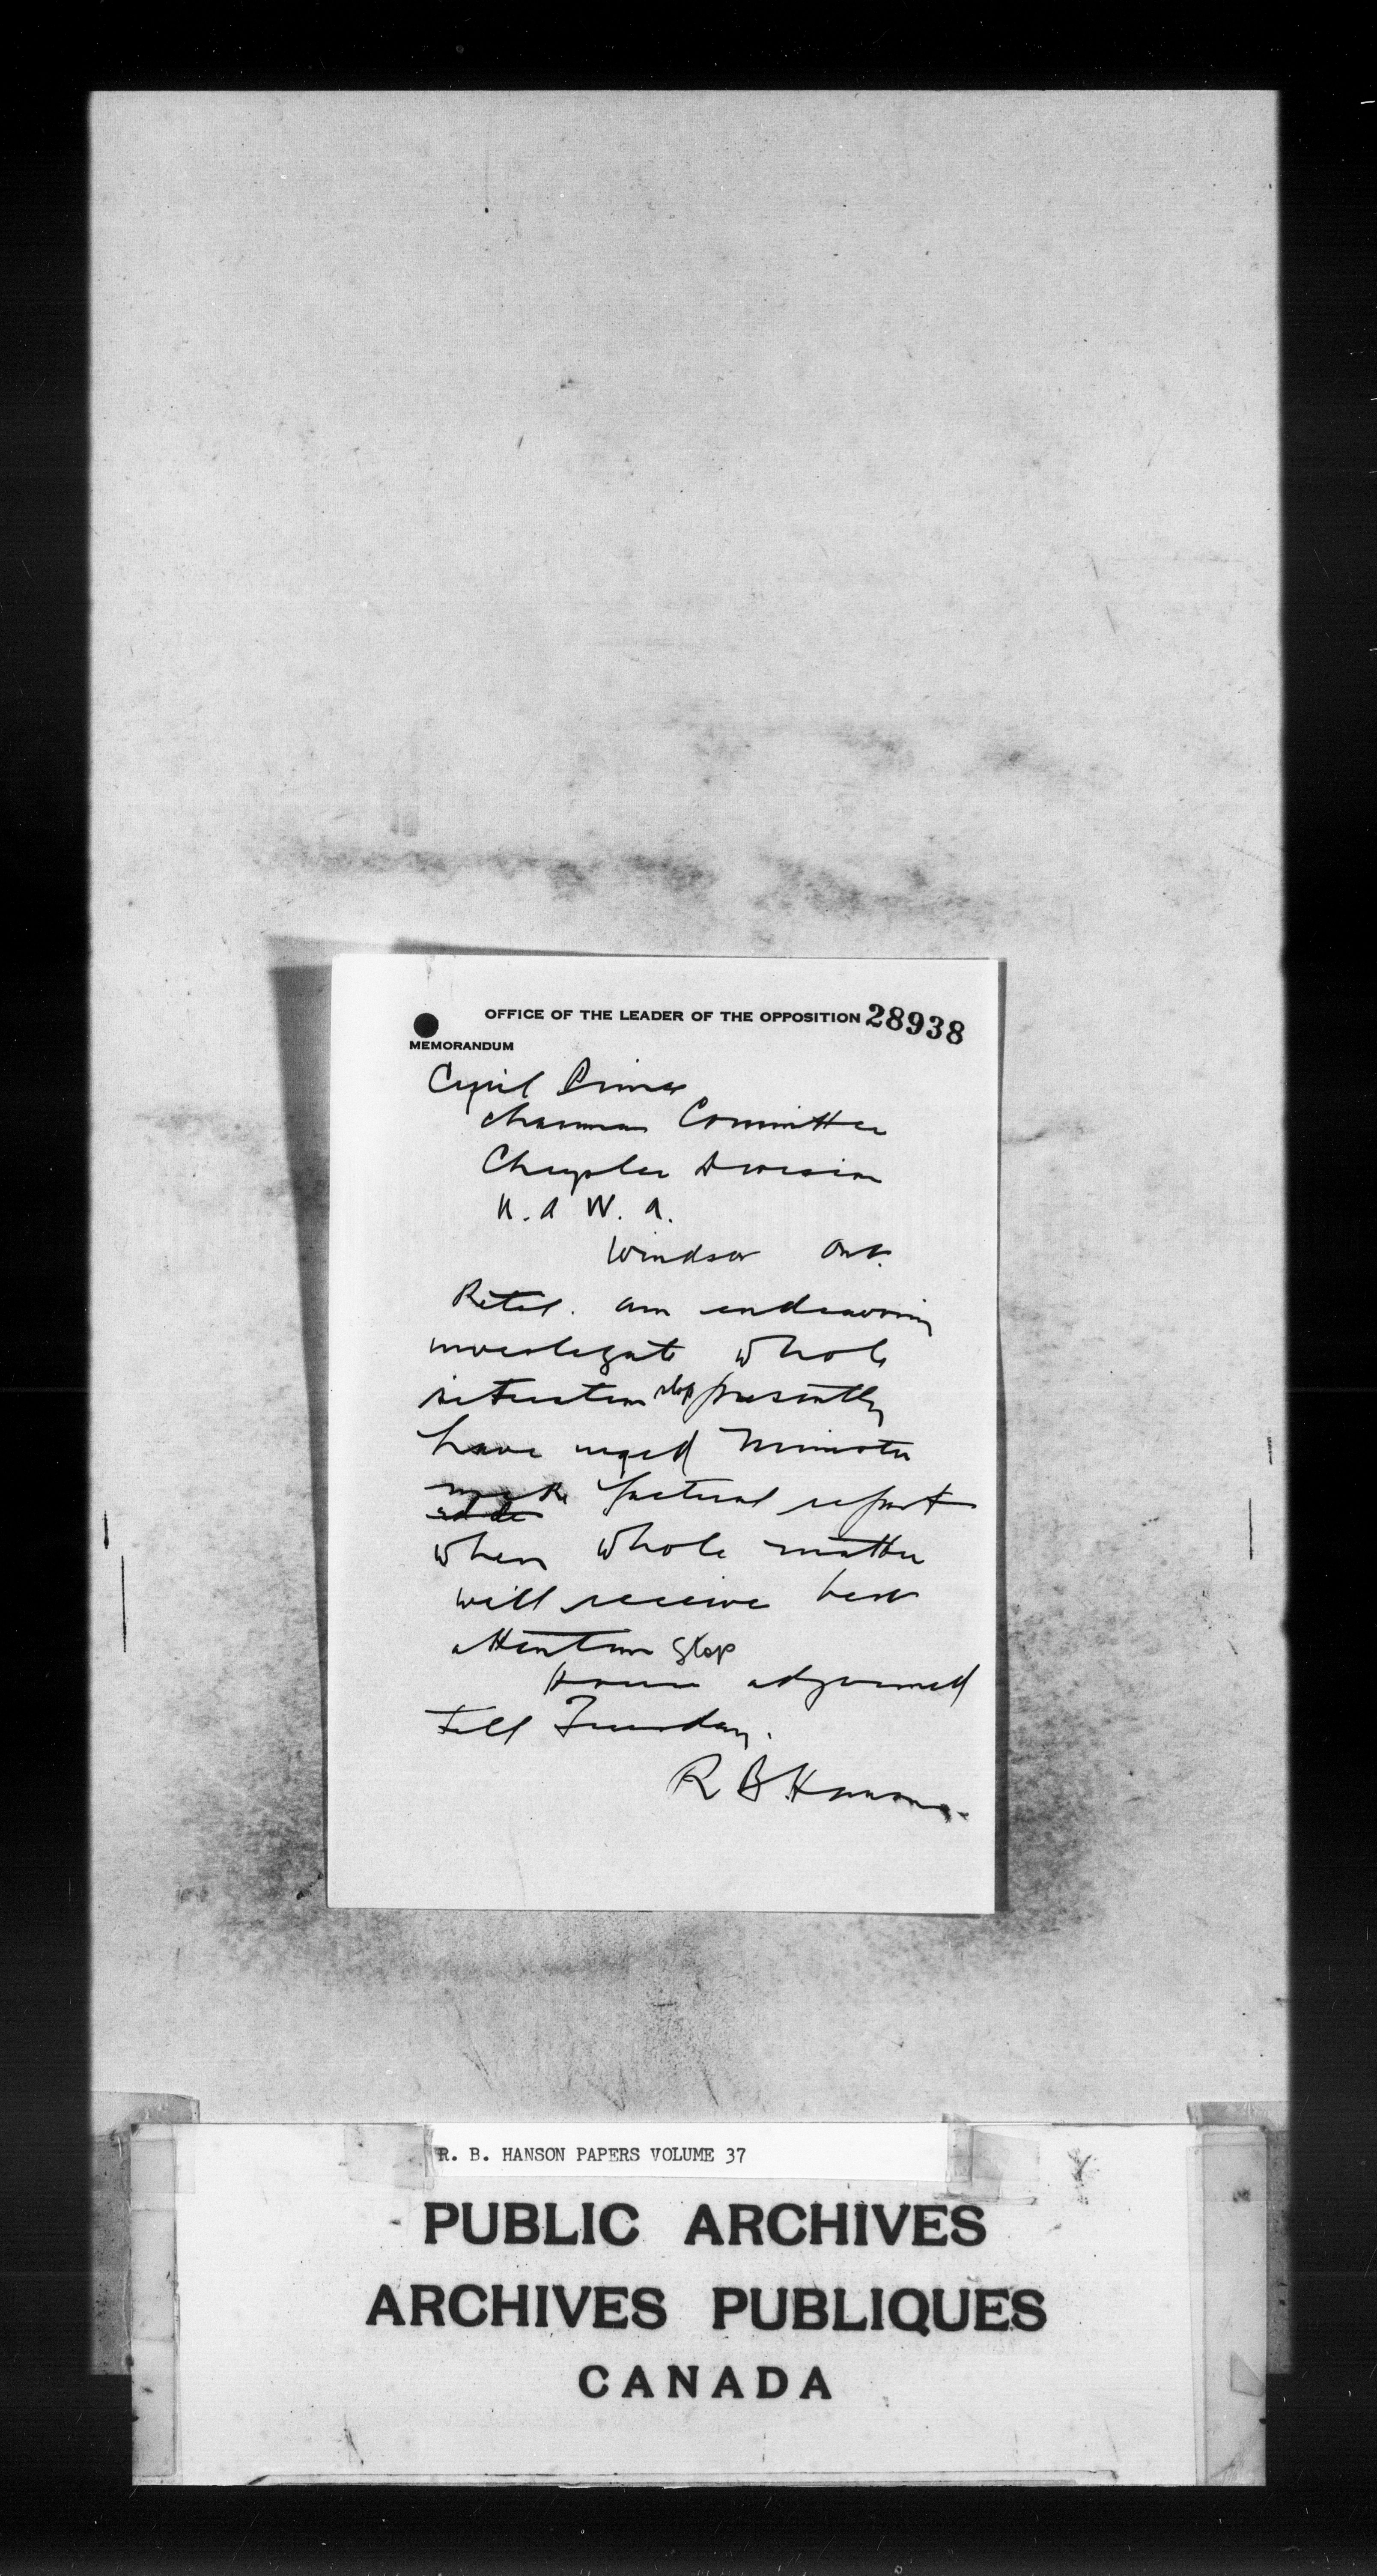 OFFICE OF THE LEADER OF THE OPPOSITION 28938
MEMORANDUM
Cyril Prince
Chairman Committee
Chrysler Division
U. A W. A.
Windsor Ont.
Retel. am endeavoring
investigate whole
situation stop presently
have urged Minister
make factual report
when whole matter
will receive best
attention stop
House adjourned
till Tuesday.
R B. Hanson.
R. B. HANSON PAPERS VOLUME 37
PUBLIC ARCHIVES
ARCHIVES PUBLIQUES
CANADA